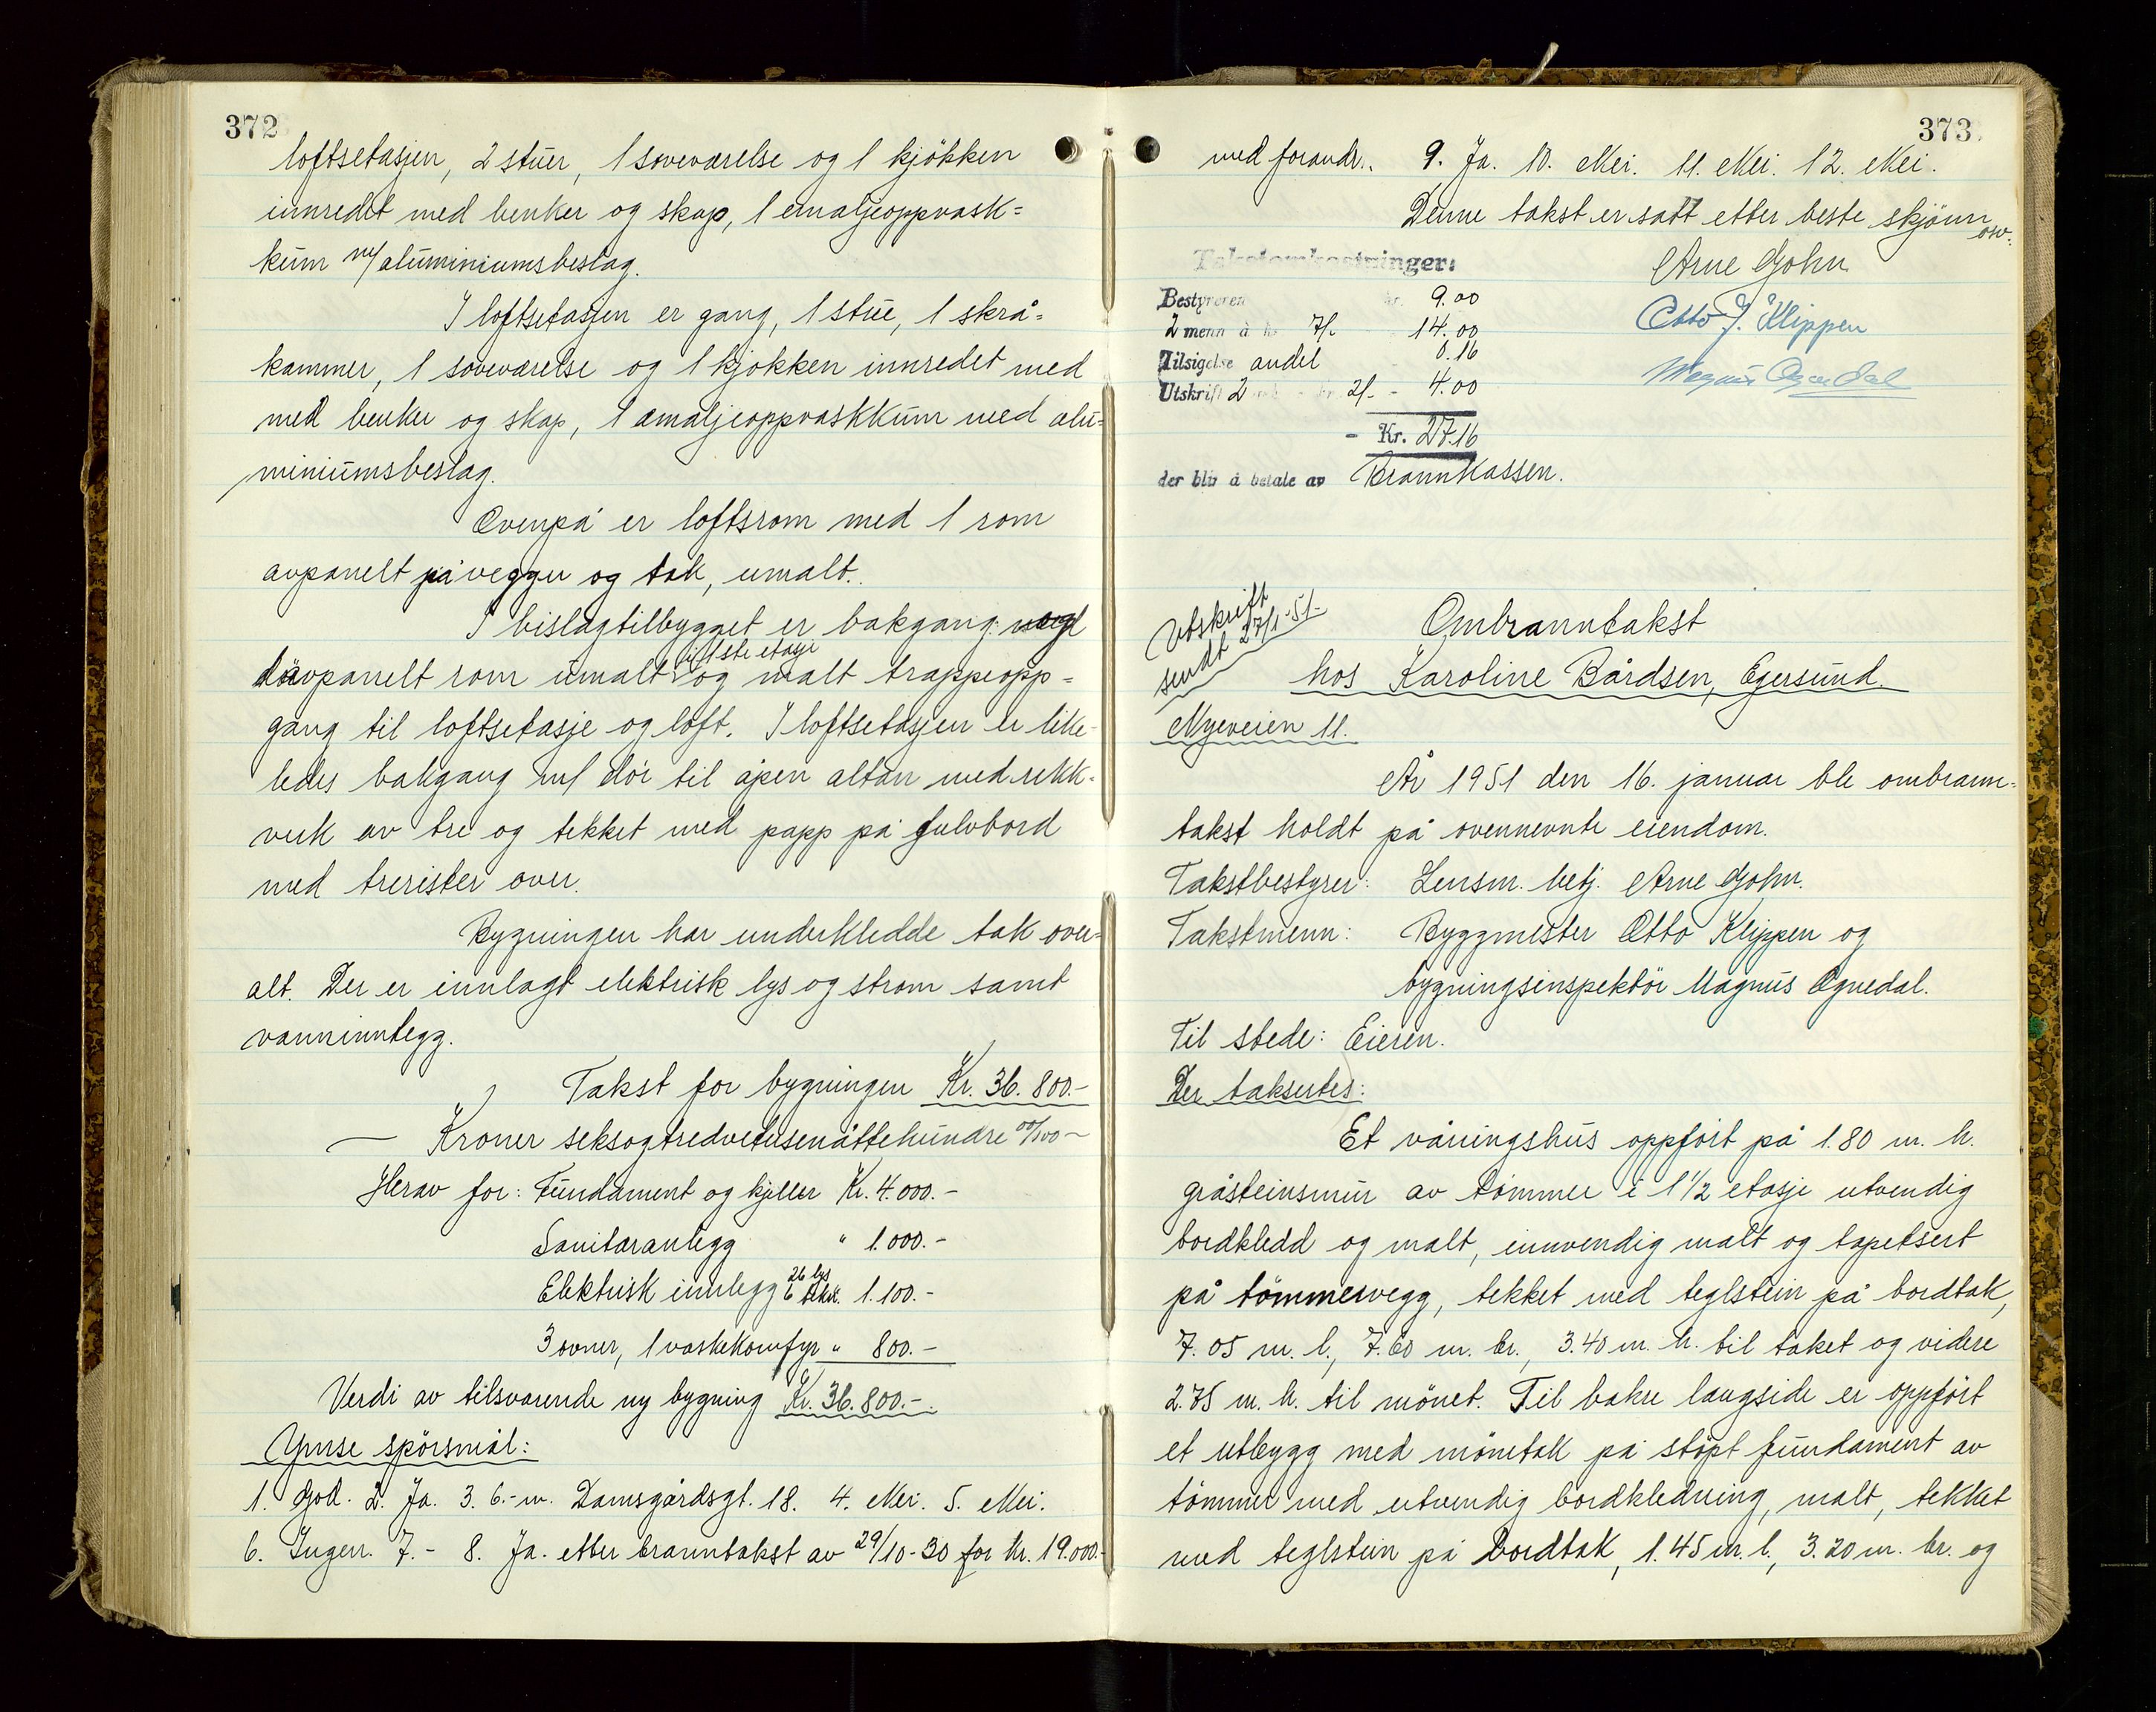 372
loftsetasjen, 2 stuer, 1 soveværelse og 1 kjökken
innredet med benker og skap, 1 emaljeoppvask=
kum m/ aluminiumsbeslag.
I loftsetasjen er gang, 1 stue, 1 skrå=
kammer, 1 soveværelse og 1 kjøkken innredet med
med benker og skap, 1 emaljeoppvaskkum med alu=
miniumsbeslag.
Ovenpå er loftsrom med 1 rom
avpanelt på vegger og tak, umalt.
I bislagtilbygget er bakgang:
avpanelt rom umalt i 1ste etasje og malt trappeopp=
gang til loftsetasje og loft. I loftsetasjen er like=
ledes bakgang m/ dör til åpen altan med rekk=
verk av tre og tekket med papp på gulvbord
med trerister over.
Bygningen har underkledde tak over=
alt. Der er innlagt elektrisk lys og strøm samt
vanninnlegg.
Takst for bygningen Kr. 36.800.-
- Kroner seksogtredvetusenåttehundre 00/100 -
Herav for: Fundament og kjeller Kr. 4.000.-
Sanitæranlegg " 1.000.-
Elektrisk innlegg 26 lys 6 stikk. 1.100.-
3 ovner, 1 vaskekomfyr " 800.-
Verdi av tilsvarende ny bygning Kr. 36.800.-.
Ymse spörsmål:
1. God. 2. Ja. 3. 6.- m. Damsgårdsgt. 18. 4. Nei. 5. Nei.
6. Ingen. 7. - 8. Ja. etter branntakst av 29/10-30 for kr. 19.000.-
373
med forandr.. 9. Ja. 10. Nei. 11. Nei. 12. Nei.
Denne takst er satt etter beste skjönn osv.
Takstomkostninger:
Arne Gohn
Bestyreren kr. 9.00
Otto J. Klippen
2 menn à kr 7/- 14.00
Tilsigelse andel 0.16
Magnus Ognedal
Utskrift 2 2/- - 4.00
- Kr. 27.16
der blir å betale av Brannkassen.
Utskrift
sendt 27/1-51-
Ombranntakst
hos Karoline Bårdsen, Egersund.
Nyeveien 11.
År 1951 den 16. januar ble ombrann=
takst holdt på ovennevnte eiendom.
Takstbestyrer: Lensm. betj. Arne Gohn.
Takstmenn: Byggmester Otto Klippen og
bygningsinspektör Magnus Ognedal.
Til stede: Eieren.
Der taksertes:
Et våningshus oppfört på 1.80 m. h.
gråsteinsmur av tömmer i 1 1/2 etasje utvendig
bordkledd og malt, innvendig malt og tapetsert
på tömmervegg, tekket med teglstein på bordtak,
7.05 m. l., 7.60 m. br., 3.40 m. h. til taket og videre
2.75 m. h. til mönet. Til bakre langside er oppfört
et utbygg med mönetak på stöpt fundament av
tömmer med utvendig bordkledning, malt, tekket
med teglstein på bordtak, 1.45 m. l., 3.20 m. br. og